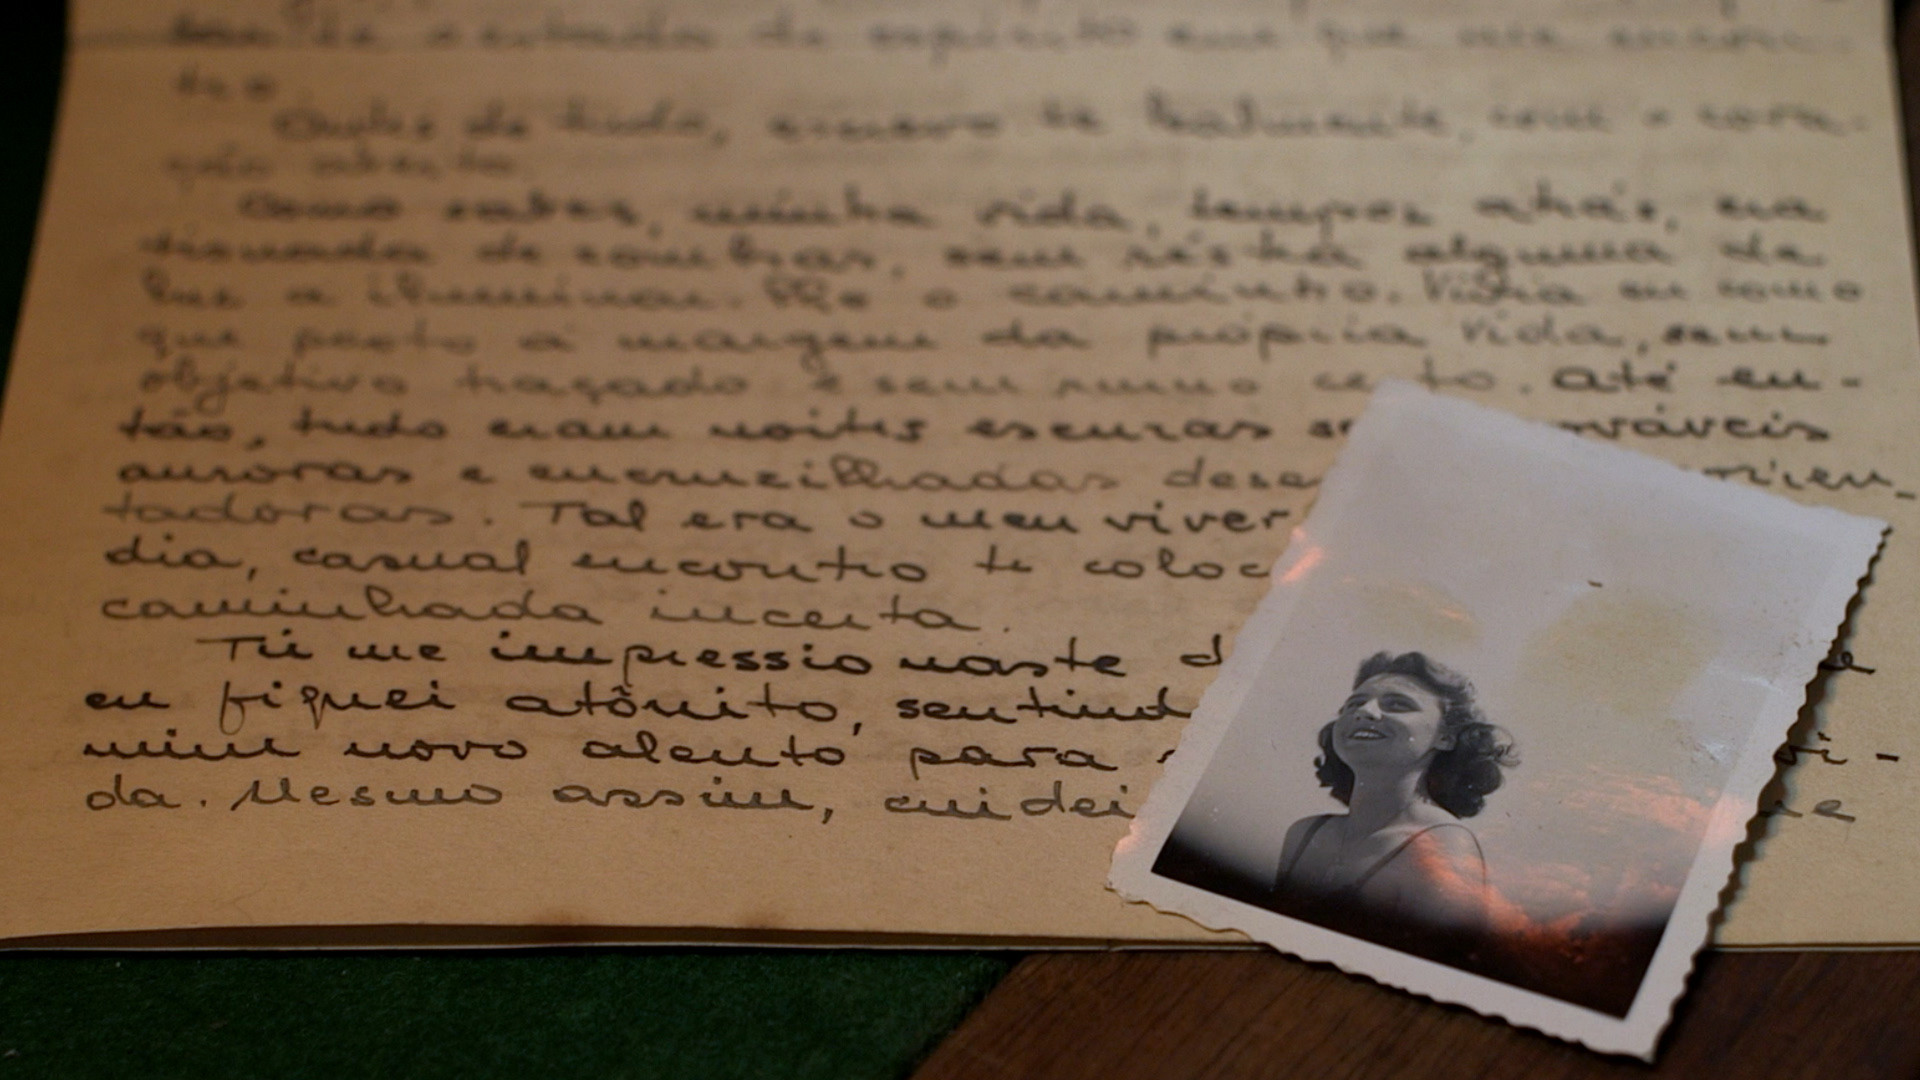 o estado de espírito em que me encon-
tro
Antes de tudo, escrevo te lealmente, com o cora-
ção aberto.
Como sabes, minha vida, tempos atrás, era
de sombras, sem réstea alguma de
luz a iluminar-lhe o caminho. Vivia eu como
que posto à margem da própria vida, sem
objetivo traçado e sem rumo certo. Até en-
tão, tudo eram noites escuras
auroras e encruzilhadas
tadoras. Tal era o meu viver
dia, casual encontro te
caminhada incerta.
Tú me impressionaste
eu fiquei atônito,
mim novo alento para vi-
da. Mesmo assim, cuidei